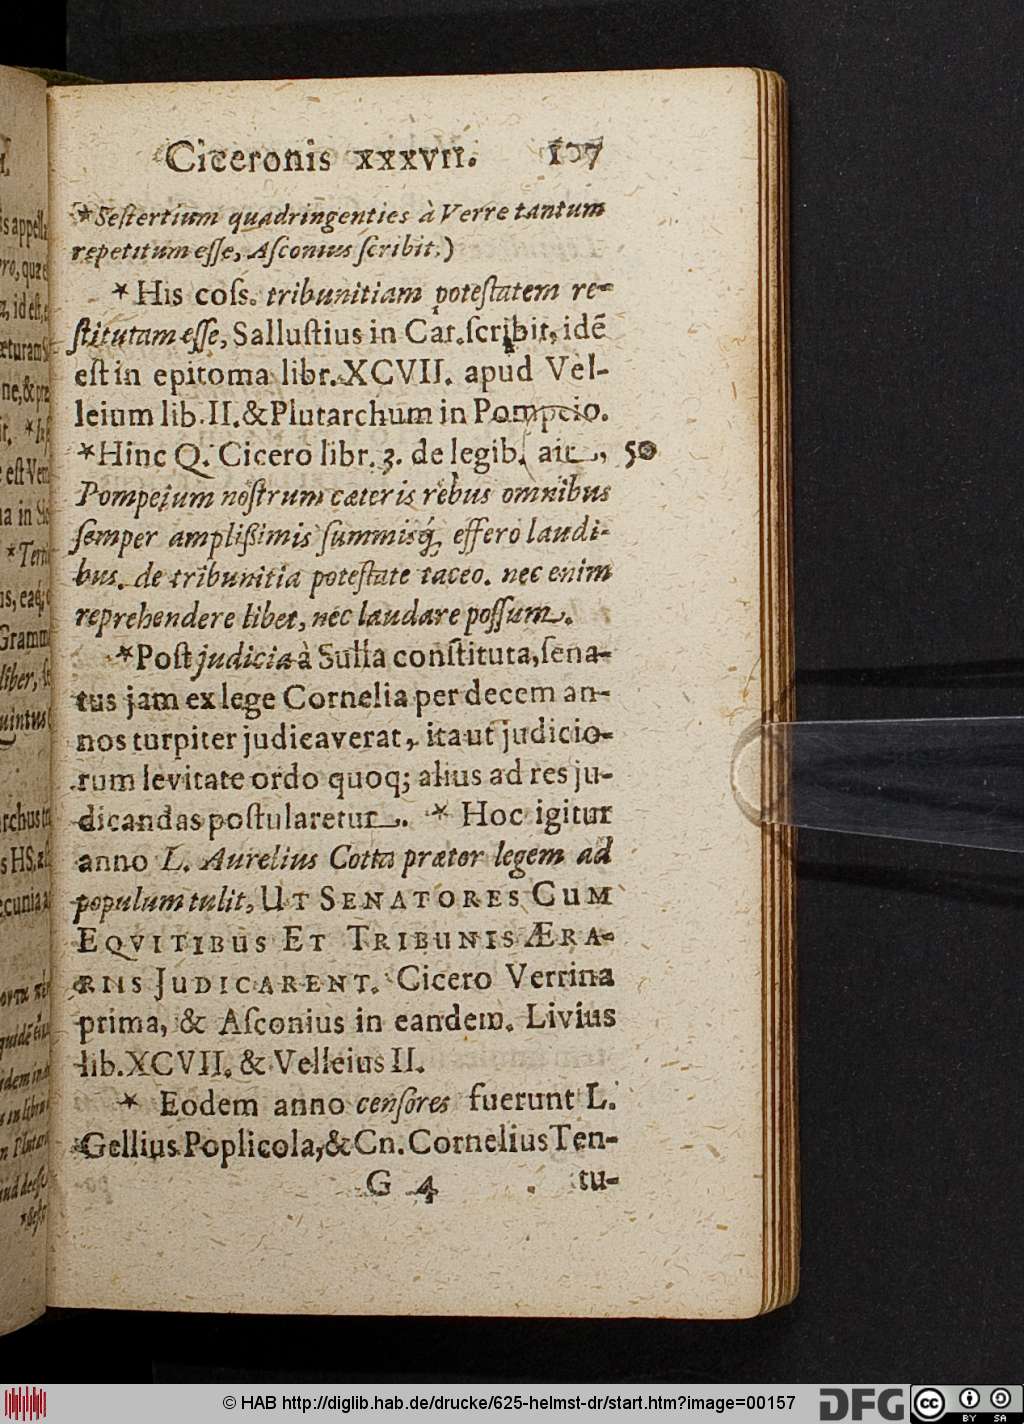 Ciceronis XXXVII. 107
*Sestertium quadringenties à Verre tantum
repetitum esse, Asconius scribit.)
*His coss. tribunitiam potestatem re-
stitutam esse, Sallustius in Cat. scribit, idē
est in epitoma libr. XCVII. apud Vel-
leium lib. II. & Plutarchum in Pompeio.
*Hinc Q. Cicero libr. 3. de legib. ait, 50
Pompejum nostrum cæteris rebus omnibus
semper amplißimis summisq́; effero laudi-
bus. de tribunitia potestate taceo. nec enim
reprehendere libet, nec laudare possum.
*Post judicia à Sulla constituta, sena-
tus jam ex lege Cornelia per decem an-
nos turpiter judicaverat, ita ut judicio-
rum levitate ordo quoq; alius ad res ju-
dicandas postularetur. * Hoc igitur
anno L. Aurelius Cotta prætor legem ad
populum tulit, UT SENATORES CUM
EQVITIBUS ET TRIBUNIS ÆRA-
RIIS JUDICARENT. Cicero Verrina
prima, & Asconius in eandem. Livius
lib. XCVII. & Velleius II.
* Eodem anno censores fuerunt L.
Gellius Poplicola, & Cn. Cornelius Ten-
G 4 tu-
© HAB http://diglib.hab.de/drucke/625-helmst-dr/start.htm?image=00157 DFG cc BY SA